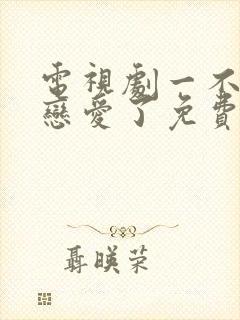 電視劇一不
戀愛了免費
聶暎荣